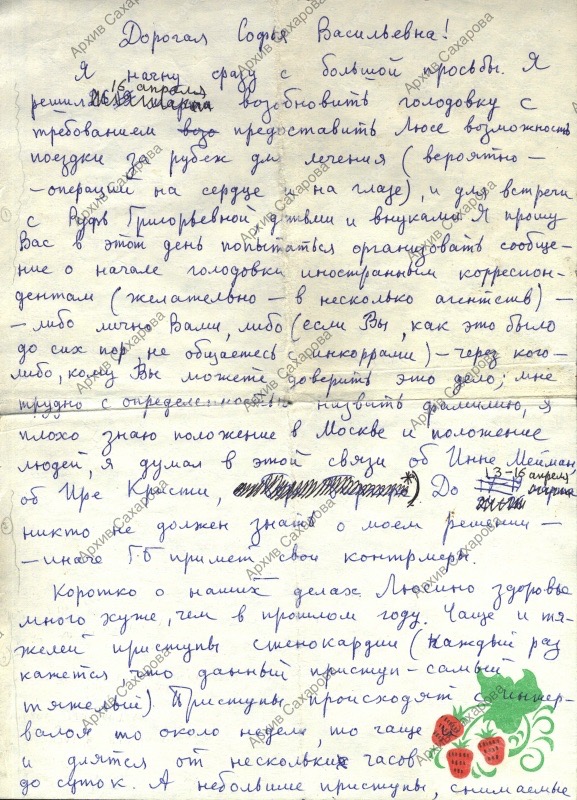 Дорогая Софья Васильевна!
Я начну сразу с большой просьбы. Я
16 апреля
решил возобновить голодовку с
требованием предоставить Люсе возможность
поездки за рубеж для лечения (вероятно –
– операций на сердце и на глазе), и для встречи
с Руфь Григорьевной детьми и внуками. Я прошу
Вас в этот день попытаться организовать сообще-
ние о начале голодовки иностранным корреспон-
дентам (желательно – в несколько агентств) –
– либо лично Вами, либо (если Вы, как это было
до сих пор, не общаетесь с инкоррами) – через кого-
либо, кому Вы можете доверить это дело; мне
трудно с определенностью назвать фамилию, я
плохо знаю положение в Москве и положение
людей, я думал в этой связи об Инне Мейман,
об Ире Кристи, *) До 13-16 апреля
никто не должен знать о моем решении –
– иначе ГБ примет свои контрмеры.
Коротко о наших делах. Люсино здоровье
много хуже, чем в прошлом году. Чаще и тя-
желей приступы стенокардии (каждый раз
кажется, что данный приступ – самый
тяжелый). Приступы происходят с интер-
валом то около недели, то чаще
и длятся от нескольких часов
до суток. А небольшие приступы, снимаемые
Архив Сахарова